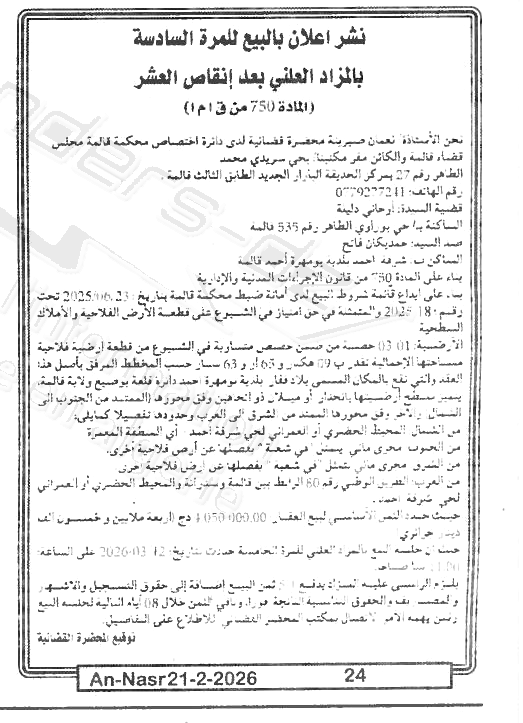 نشر اعلان بالبيع للمرة السادسة
بالمزاد العلني بعد إنقاص العشر
(المادة 750 من ق ا م ا)
نحن الأستاذة: نعمان صبرينة محضرة قضائية لدى دائرة اختصاص محكمة قالمة مجلس
قضاء قالمة والكائن مقر مكتبنا: بحي سريدي محمد
الطاهر رقم 27 بمركز الحديقة البلازا الجديد الطابق الثالث قالمة .
رقم الهاتف: 0779277241
قضية السيدة: أوحاني دليلة
الساكنة بـ/ حي بوزراوي الطاهر رقم 535 قالمة
ضد السيد: حمديكان فاتح
الساكن ب: شرفة احمد بلدية بومهرة أحمد قالمة
بناء على المادة 750 من قانون الإجراءات المدنية والإدارية
بناء على ايداع قائمة شروط البيع لدى أمانة ضبط محكمة قالمة بتاريخ: 2025/06/23 تحت
رقم: 2025/18 والمتمثلة في حق امتياز في الشيوع على قطعة الأرض الفلاحية والأملاك
السطحية
الأرضية: 03/01 حصة من ضمن حصص متساوية في الشيوع من قطعة ارضية فلاحية
مساحتها الإجمالية تقدر ب 09 هكتار و 65 آر و 63 سنتيار حسب المخطط المرفق بأصل هذا
العقد والتي تقع بالمكان المسمى بلاد بلدية بومهرة احمد دائرة قلعة بوصبع ولاية قالمة،
يتميز سطح أرضيتها بانحدار أو ميلان ذو اتجاهين وفق محورها (الممتد من الجنوب الى
الشمال والآخر وفق محورها الممتد من الشرق الى الغرب وحدودها تفصيلا كمايلي:
من الشمال: المحيط الحضري أو العمراني لحي شرفة أحمد أي المنطقة المعمرة
من الجنوب: مجرى مائي يتمثل "في شعبة" يفصلها عن أرض فلاحية أخرى.
من الشرق: مجرى مائي يتمثل "في شعبة" يفصلها عن أرض فلاحية أخرى
من الغرب: الطريق الوطني رقم 80 الرابط بين قالمة وسدراتة والمحيط الحضري أو العمراني
لحي شرفة أحمد .
حيث حدد الثمن الأساسي لبيع العقار: 4.050.000,00 دج (أربعة ملايين و خمسون ألف
دينار جزائري
حيث أن جلسة البيع بالمزاد العلني للمرة الخامسة حددت بتاريخ: 2026-03-12 على الساعة:
صباحا.
يلتزم الراسي عليه المزاد بدفع 5/1 ثمن البيع إضافة إلى حقوق التسجيل والاشهار
والمصاريف والحقوق التناسبية الناتجة فورا وباقي الثمن خلال 08 أيام التالية لجلسة البيع
ولمن يهمه الأمر الاتصال بمكتب المحضر القضائي للاطلاع على التفاصيل.
توقيع المحضرة القضائية
An-Nasr 21-2-2026 24